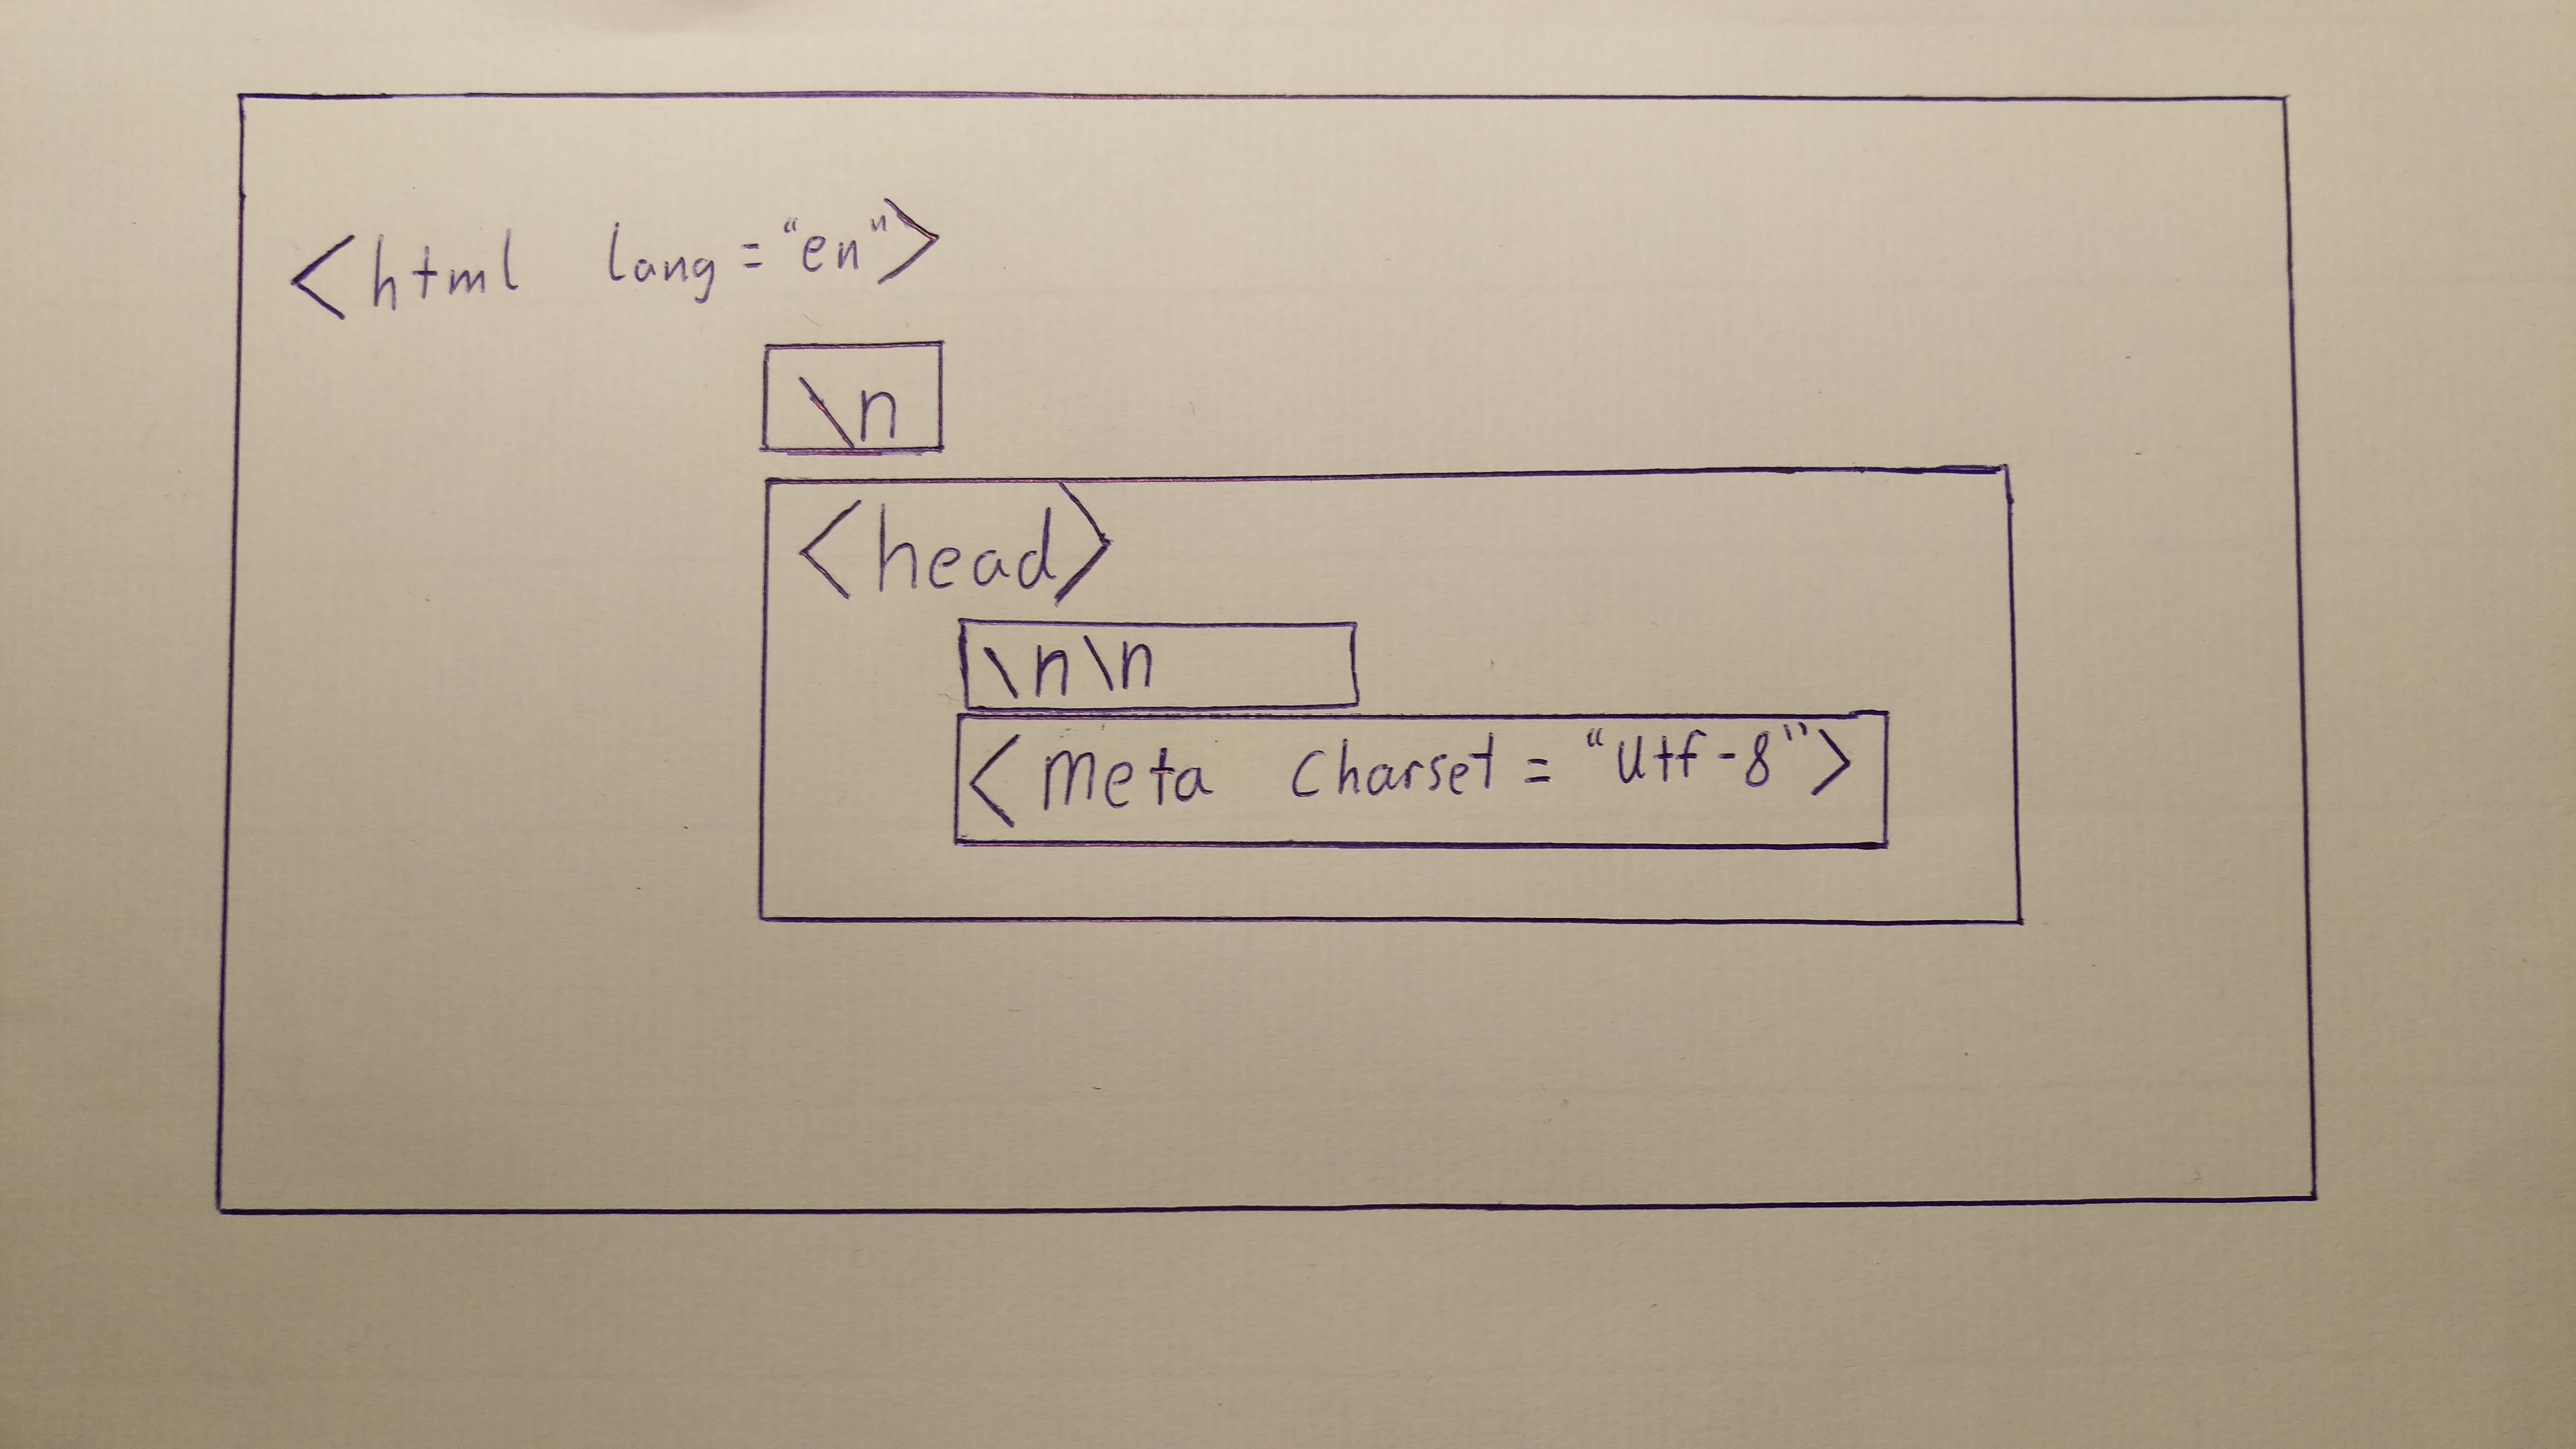 <html lang="en">
\n
<head>
\n\n
<meta charset="utf-8">